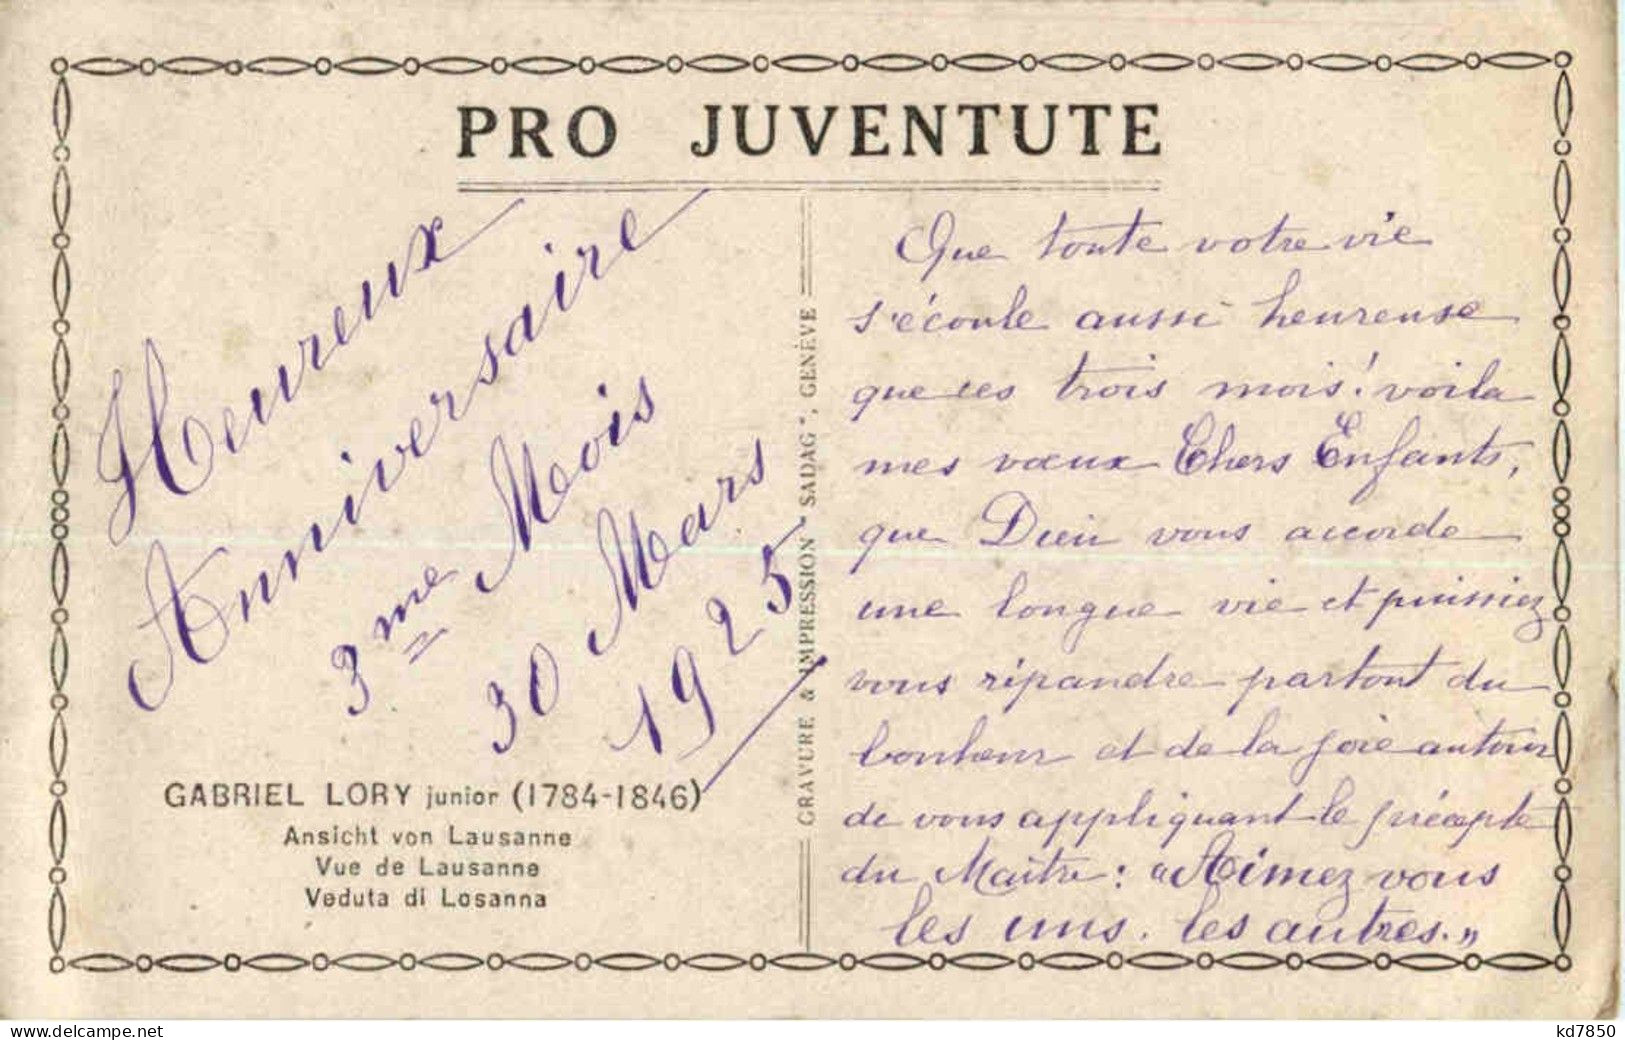 PRO JUVENTUTE
Heureux
Anniversaire
3me Mois
30 Mars
1925
GABRIEL LORY junior (1784-1846)
Ansicht von Lausanne
Vue de Lausanne
Veduta di Losanna
GRAVURE & IMPRESSION "SADAG", GENÈVE
Que toute votre vie
s'écoule aussi heureuse
que ces trois mois! voila
mes vœux Chers Enfants,
que Dieu vous accorde
une longue vie et puissiez
vous répandre partout du
bonheur et de la joie autour
de vous appliquant le précepte
du Maître: "Aimez vous
les uns. les autres."
www.delcampe.net
kd7850